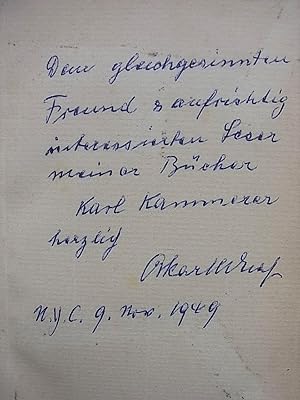 Dem gleichgesinnten
Freund & aufrichtig
interessierten Leser
meiner Bücher
Karl Kammerer
herzlich
Oskar M Graf
N.Y.C. 9. Nov. 1949